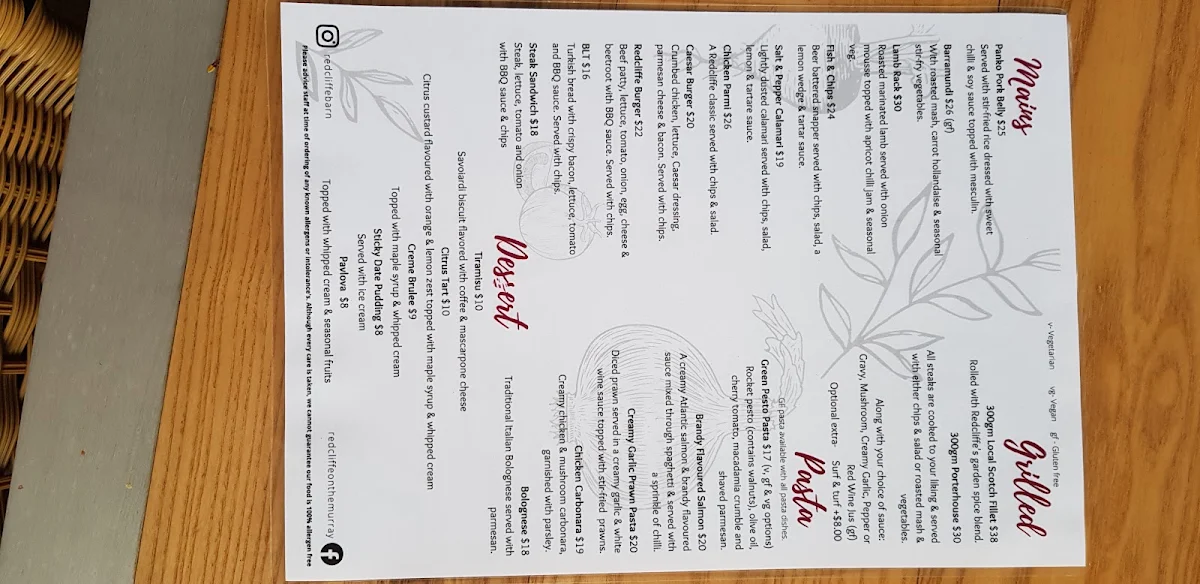 v- Vegetarian vg- Vegan gf - Gluten free
Mains
Panko Pork Belly $25
Served with stir-fried rice dressed with sweet
chilli & soy sauce topped with mesculin.
Barramundi $26 (gf)
With roasted mash, carrot hollandaise & seasonal
stir-fry vegetables.
Lamb Rack $30
Roasted marinated lamb served with onion
mousse topped with apricot chilli jam & seasonal
veg.
Fish & Chips $24
Beer battered snapper served with chips, salad, a
lemon wedge & tartar sauce.
Salt & Pepper Calamari $19
Lightly dusted calamari served with chips, salad,
lemon & tartare sauce.
Chicken Parmi $26
A Redcliffe classic served with chips & salad.
Caesar Burger $20
Crumbed chicken, lettuce, Caesar dressing,
parmesan cheese & bacon. Served with chips.
Redcliffe Burger $22
Beef patty, lettuce, tomato, onion, egg, cheese &
beetroot with BBQ sauce. Served with chips.
BLT $16
Turkish bread with crispy bacon, lettuce, tomato
and BBQ sauce. Served with chips.
Steak Sandwich $18
Steak, lettuce, tomato and onion
with BBQ sauce & chips
Grilled
300gm Local Scotch Fillet $38
Rolled with Redcliffe's garden spice blend.
300gm Porterhouse $30
All steaks are cooked to your liking & served
with either chips & salad or roasted mash &
vegetables.
Along with your choice of sauce:
Gravy, Mushroom, Creamy Garlic, Pepper or
Red Wine Jus (gf)
Optional extra- Surf & turf +$8.00
Pasta
Gf pasta available with all pasta dishes.
Green Pesto Pasta $17 (v, gf & vg options)
Rocket pesto (contains walnuts), olive oil,
cherry tomato, macadamia crumble and
shaved parmesan.
Brandy Flavoured Salmon $20
A creamy Atlantic salmon & brandy flavoured
sauce mixed through spaghetti & served with
a sprinkle of chilli.
Creamy Garlic Prawn Pasta $20
Diced prawn served in a creamy garlic & white
wine sauce topped with stir-fried prawns.
Chicken Carbonara $19
Creamy chicken & mushroom carbonara,
garnished with parsley.
Bolognese $18
Traditional Italian Bolognese served with
parmesan.
Dessert
Tiramisu $10
Savoiardi biscuit flavored with coffee & mascarpone cheese
Citrus Tart $10
Citrus custard flavoured with orange & lemon zest topped with maple syrup & whipped cream
Creme Brulee $9
Topped with maple syrup & whipped cream
Sticky Date Pudding $8
Served with ice cream
Pavlova $8
Topped with whipped cream & seasonal fruits
redcliffebarn
redcliffeonthemurray
Please advise staff at time of ordering of any known allergens or intolerance's. Although every care is taken, we cannot guarantee our food is 100% allergen free